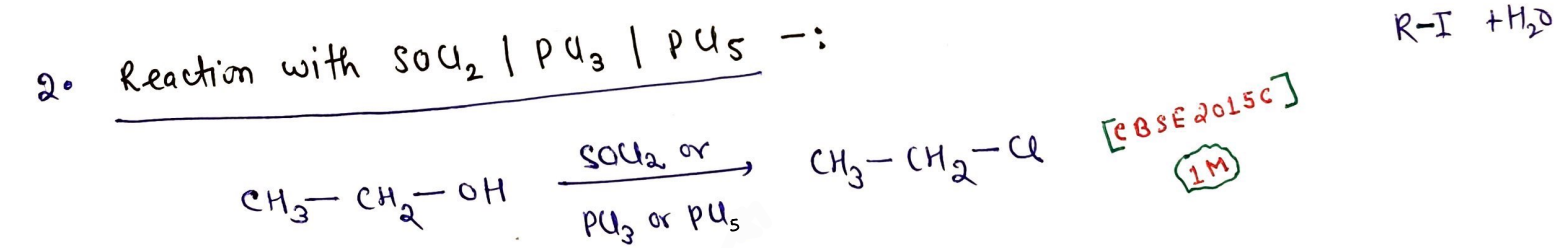 R-I +H₂O
2. Reaction with SOCl₂ | PCl₃ | PCl₅ -:
CH₃-CH₂-OH SOCl₂ or PCl₃ or PCl₅ → CH₃-CH₂-Cl [CBSE 2015C]
1M